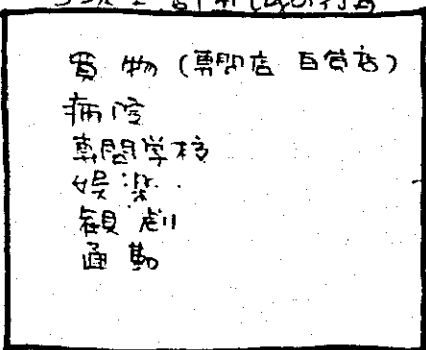 買物（専門店 百貨店）
病院
専門学校
娯楽
観劇
通勤